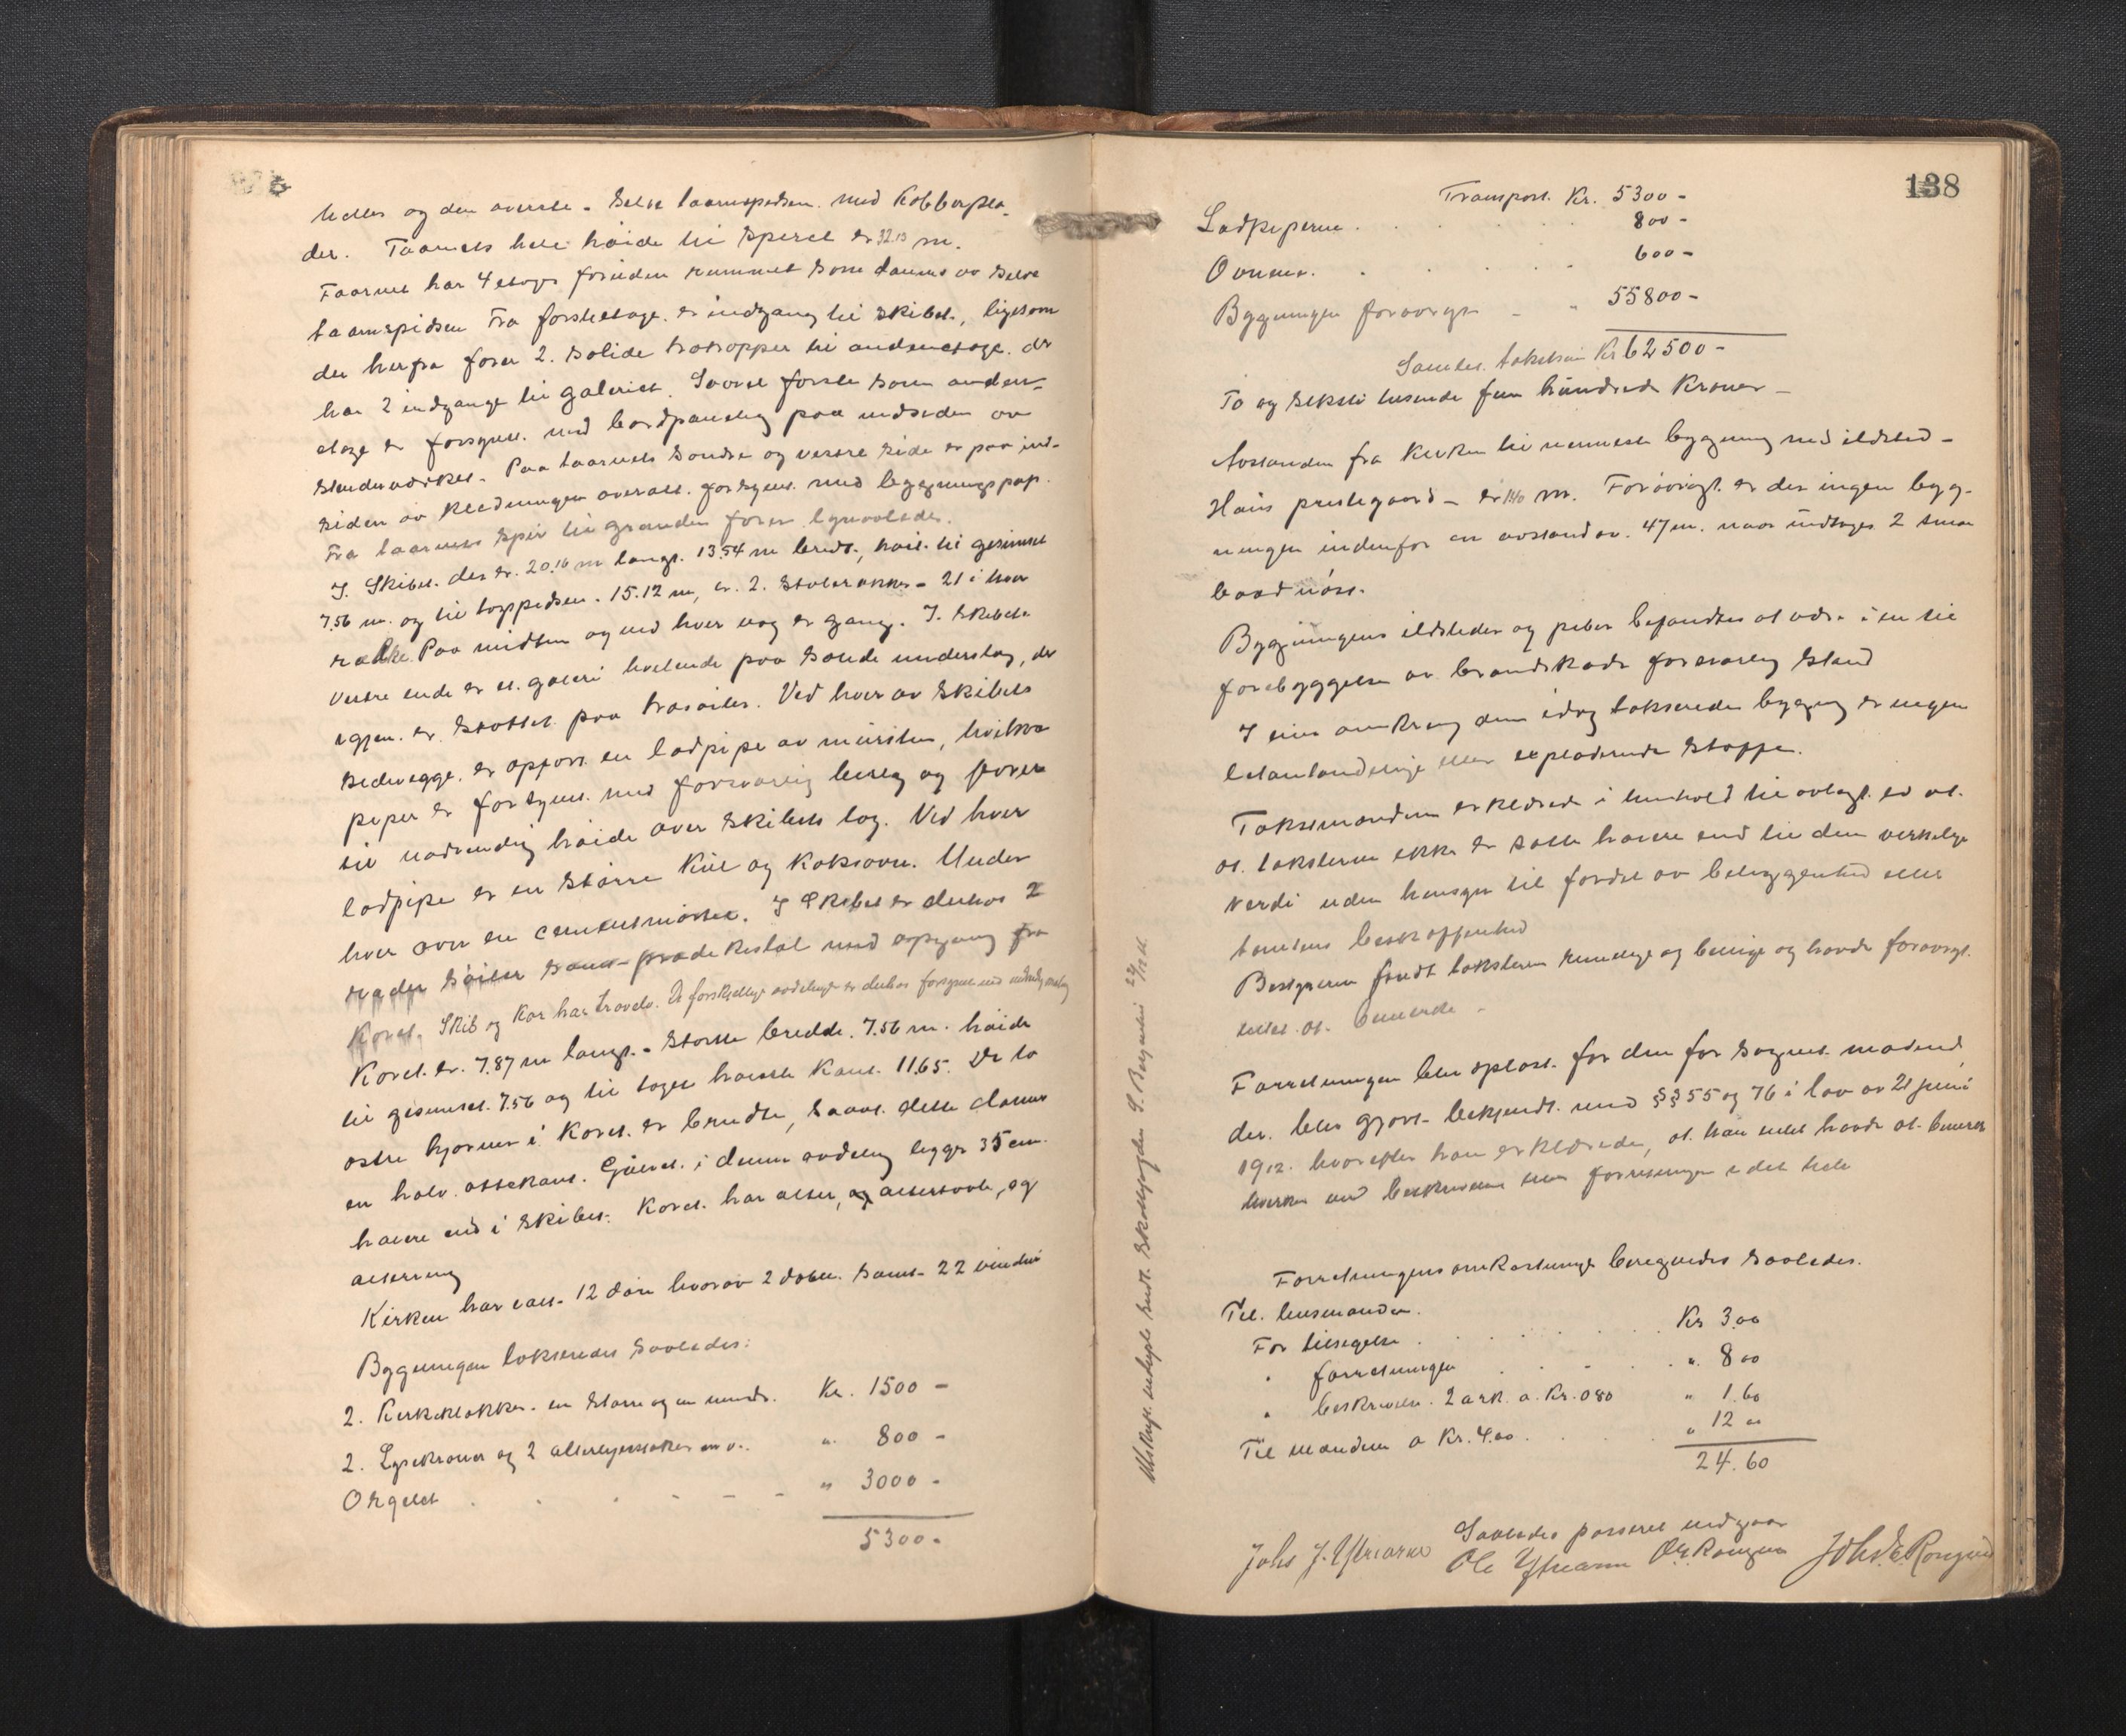 heller og den øverste - selve taarnspidsen med Kobberpla-
der. Taarnets hele høide til spiret er 32.13 m.
Taarnet har 4 etager foruden rummet som dannes av selve
taarnspidsen Fra første etage er indgang til skibet, ligesom
der herfra fører 2 solide trætrapper til anden etage der
har 2 indgange til galeriet. Saavel første som anden-
etage er forsynet med bordpanelig paa indsiden av
stenderverket. Paa taarnets søndre og vestre side er paa ind-
siden av klædningen overalt forsynet med bygningspap.
Fra taarnets spir til grunden fører lynavleder.
I Skibet der er 20.16 m langt. 13.54 m bredt, høit til gesimset
7.56 m. og til tagspidsen 15.12 m, er 2 stolerækker - 21 i hver
række. Paa midten og ved hver væg er gang. I Skibets
vestre ende er et galeri hvilende paa solide underslag, der
igjen er støttet paa træsøiler. Ved hver av skibets
sidevegge er opført en ladpipe av mursten, hvilke
piper er forsynet med forsvarlig beslag og fører
til nødvendig høide over skibets tag. Ved hver
ladpipe er en større Kul og Koksovn. Under
hver ovn en cementmurstet. I Skibet er derhos 2
rader søiler samt prædikestol med opgang fra
Koret. Skib og Kor har trævelv. De forskjellige avdelinger er derhos forsynet med nødvendig maling
Koret er 7.87 m langt - største bredde 7.56 m. høide
til gesimset 7.56 og til taget høieste Kant 11.65. De to
østre hjørner i Koret er brudte, saavel dette danner
en halv ottekant. Gulvet i denne avdeling ligger 35 cm.
høiere end i skibet. Koret har alter, og altertavle, og
alterring
Kirken har ialt 12 døre hvorav 2 doble samt 22 vinduer
Bygningen takseredes saaledes:
2. Kirkeklokker en større og en mindre Kr. 1500 -
2. Lysekroner og 2 alterlysestaker m.v. " 800 -
Orgelet . . . . - - - " 3000 -
5300 -
138
Transport. Kr. 5300 -
Ladpiperne . . . . 800 -
Ovnene . . . . . 600 -
Bygningen forøvrigt - " 55800 -
Samlet takstsum Kr 62500 -
To og seksti tusende fem hundrede Kroner -
Avstanden fra kirken til nærmeste bygning med ildsted -
Haus prestegaard - er 140 m. Forøvrigt er der ingen byg-
ninger indenfor en avstand av 47 m. naar undtages 2 smaa
baadnøst.
Bygningens ildsteder og piber befandtes at være i en til
forebyggelse av brandskade forsvarlig stand
I eller omkring den idag takserede bygning er ingen
letantændelige eller exploderende stoffer.
Taksmændene erklærede i henhold til avlagt ed at
at taksterne ikke er satte høiere end til den virkelige
verdi uden hensyn til fordel av beliggenhed eller
tomtens beskaffenhed
Bestyreren fandt taksterne rimelige og billige og havde forøvrigt
intet at bemerke -
Forretningen blev oplæst for den for sognet mødende
der blev gjort bekjendt med §§ 55 og 76 i lov av 21 juni
1912. hvorefter han erklærede, at han intet havde at bemerke
hverken ved beskrivelsen eller forretningen i det hele
Forretningens omkostninger beregnedes saaledes.
Til lensmanden.
For tilsigelse . . . . . . Kr 3.00
" forretningen . . . . " 8 00
" beskrivelse 2 ark a Kr. 0 80 " 1.60
Til mændene a Kr. 4.00 . . . . " 12 00
24.60
Saaledes passeret vedgaar
Johs J. Ystrearne Ole Ystrearne O. E. Romgren Johs. E. Romgren
Utskrift utlagt sendt Skoldsfogden S. Bergenhus 24/12 11.